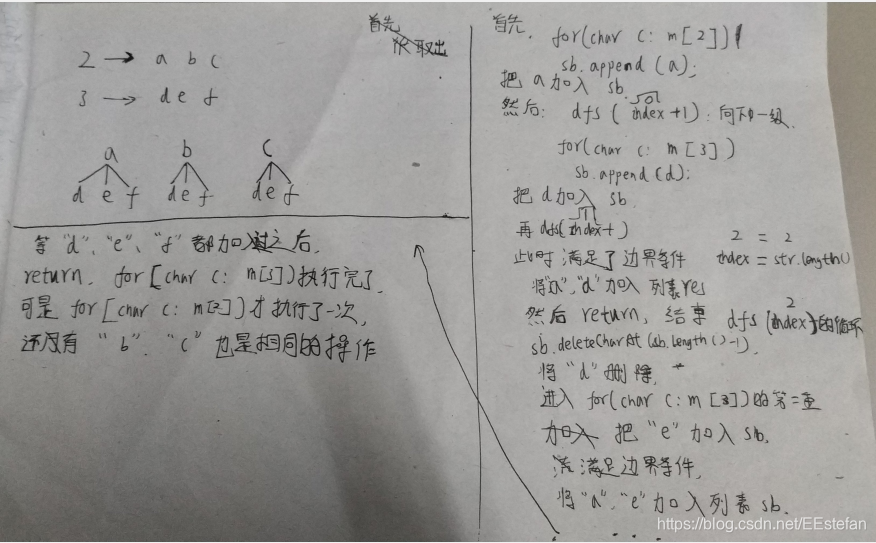 首先
2 → a b c
3 → d e f
a b c
d e f d e f d e f
等"d"、"e"、"f"都加入过之后,
return, for [char c: m[3])执行完了,
可是 for [char c: m[2])才执行了一次,
还没有"b"、"c"也是相同的操作
首先, for(char c: m[2])
sb.append(a);
把a加入 sb
0
然后: dfs(index+1): 向下一级.
for(char c: m[3])
sb.append(d);
把d加入 sb
1
再 dfs(index+)
2 = 2
此时 满足了边界条件 index = str.length()
将"a","d"加入 列表res
2
然后 return, 结束 dfs(index)的循环
sb.deleteCharAt(sb.length()-1),
将"d"删除,
进入 for(char c: m[3])的第二重
加入 把"e"加入 sb,
满足边界条件,
将"a","e"加入列表 sb.
https://blog.csdn.net/EEstefan